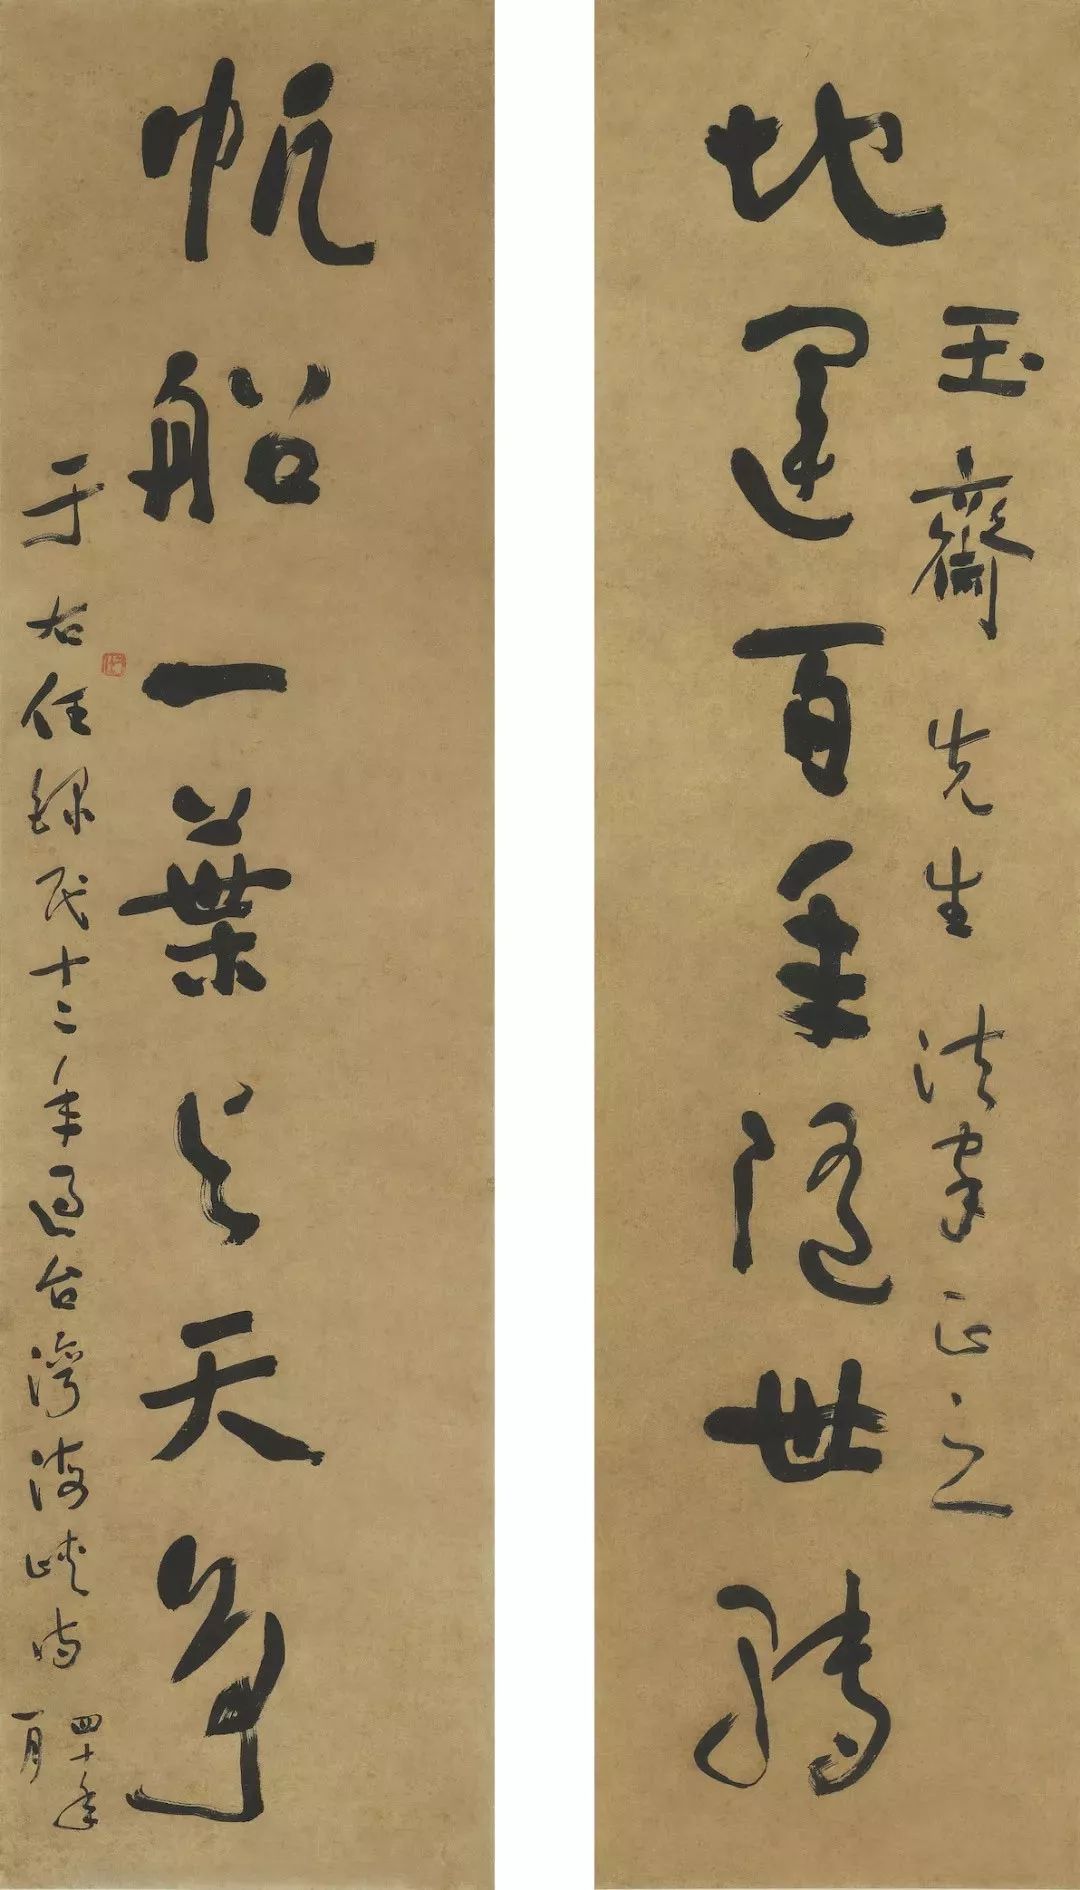 地運百年隨世轉
玉齋先生法家正之
帆船一葉與天爭
于右任錄民十二年過台灣海峽時
四十年
一月